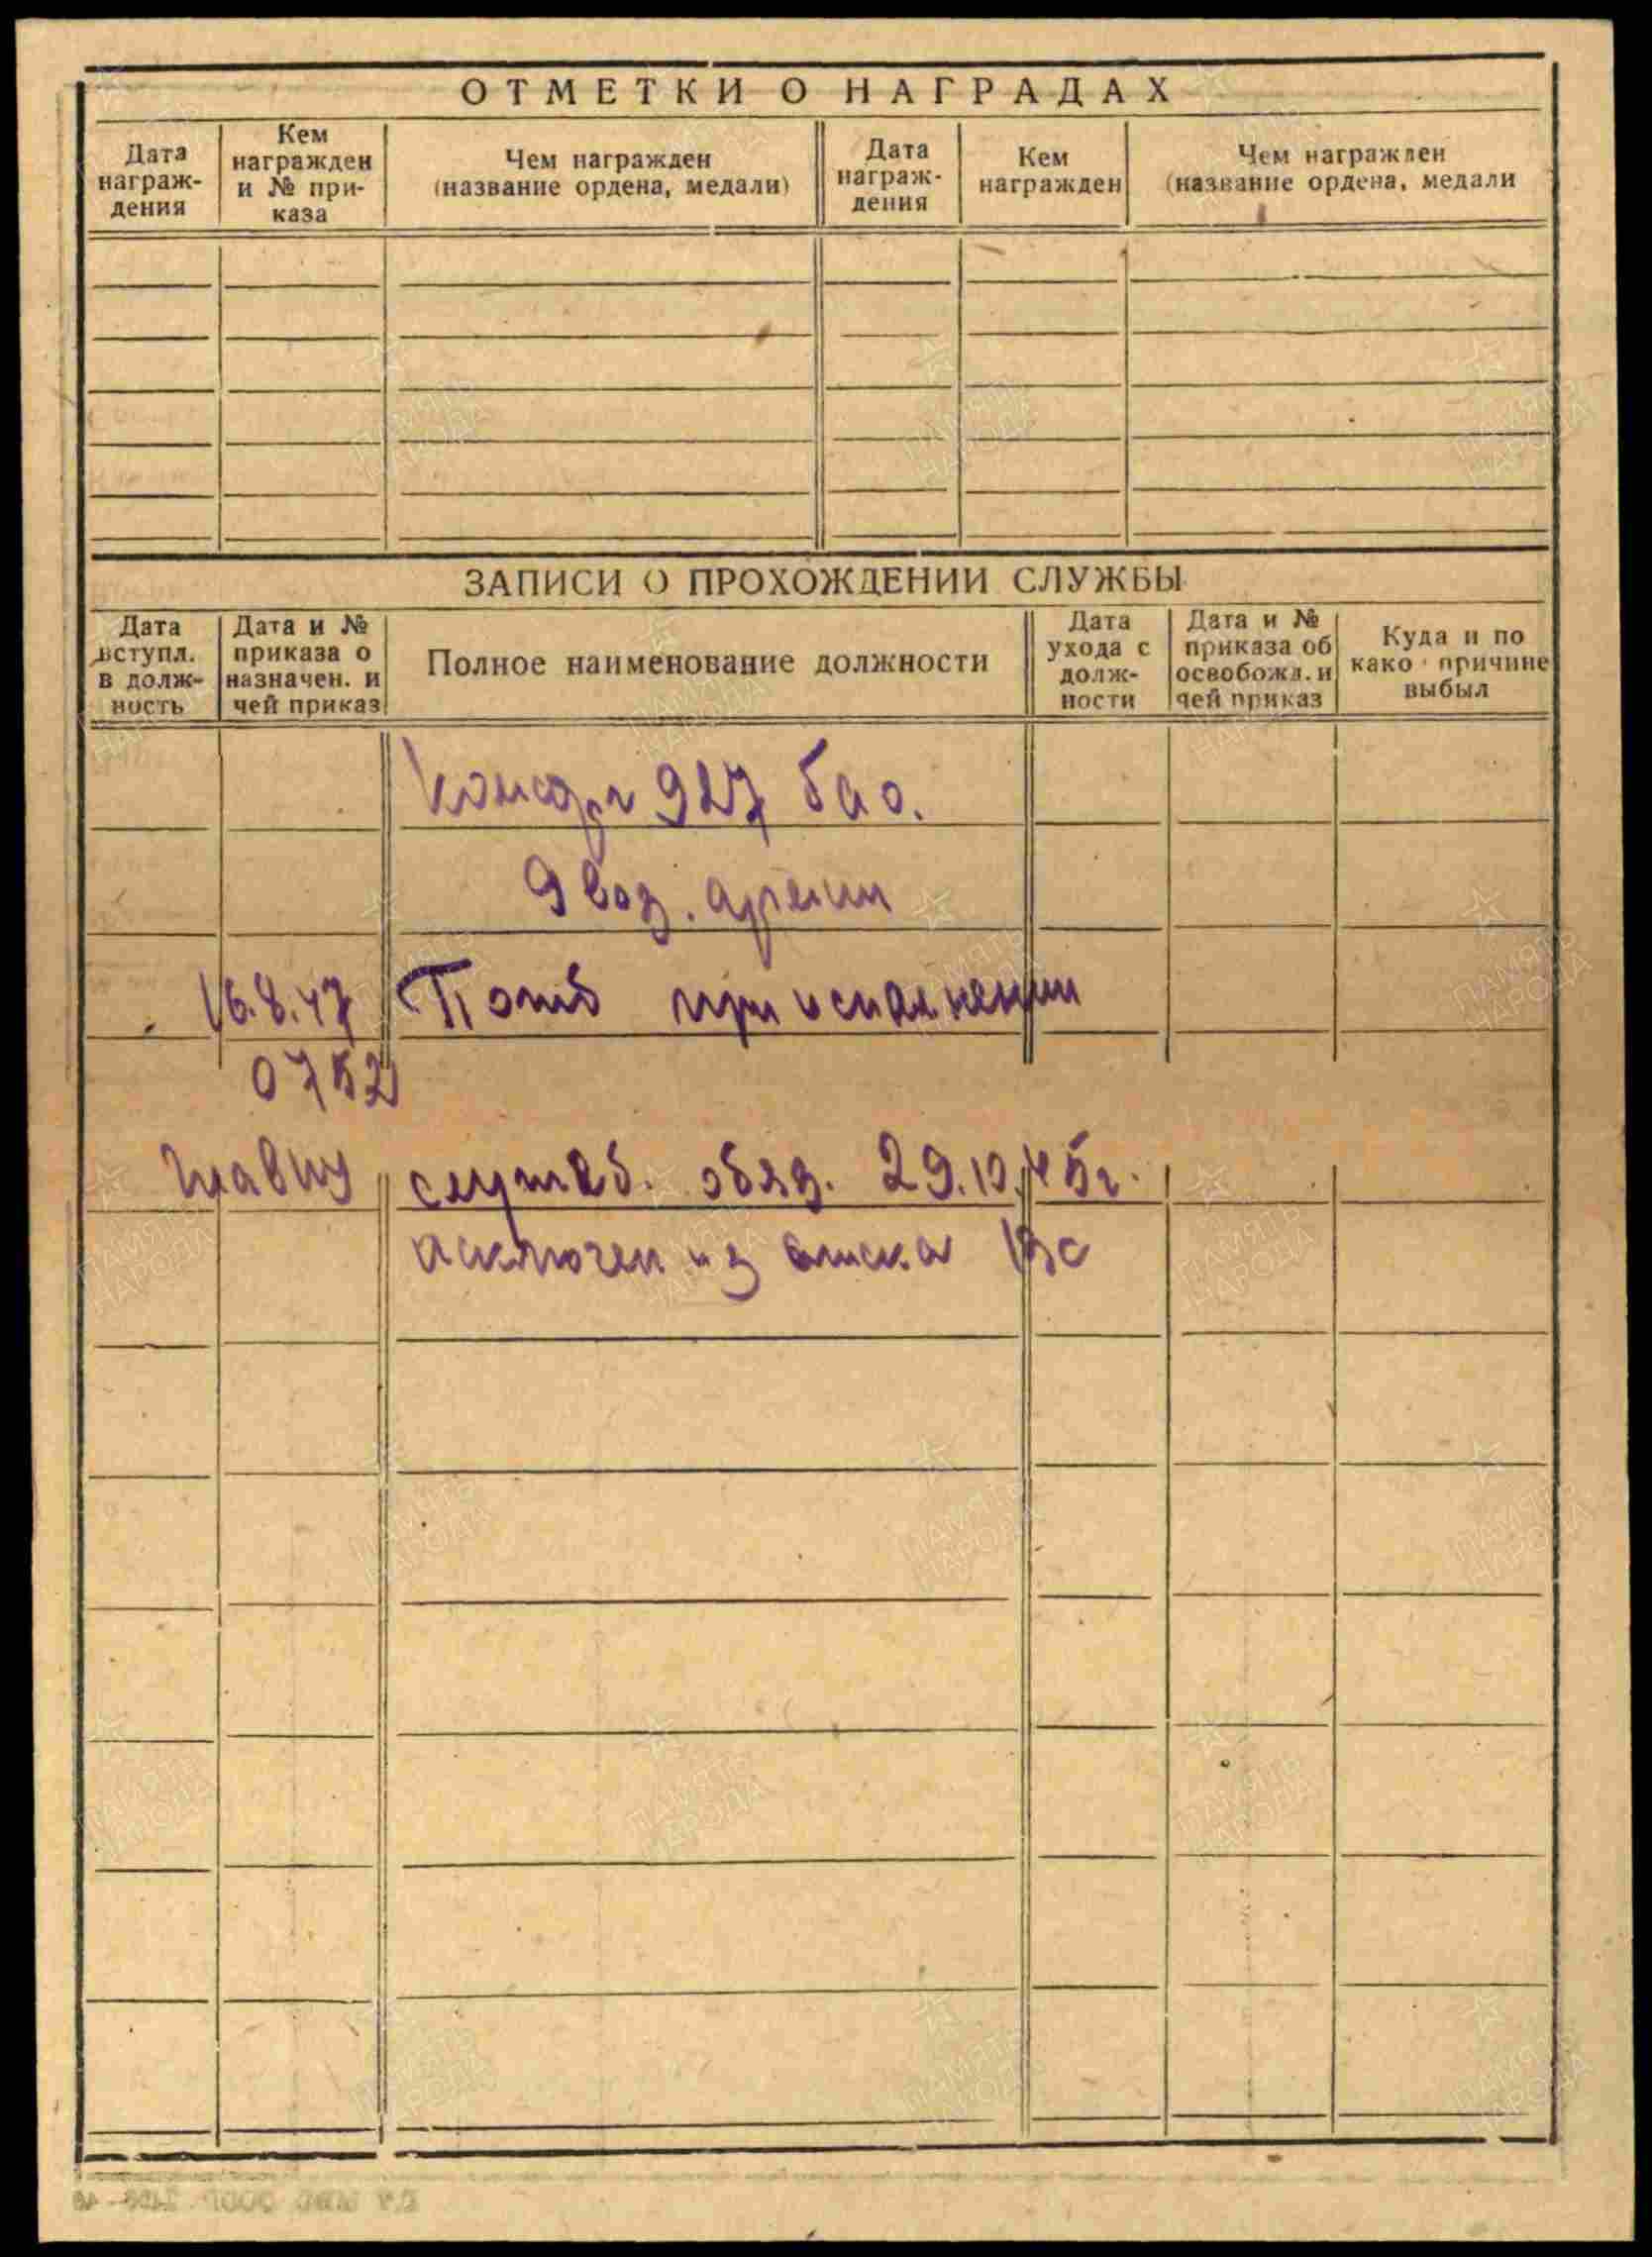 ОТМЕТКИ О НАГРАДАХ
Дата награж-дения
Кем награжден и № при-каза
Чем награжден (название ордена, медали)
Дата награж-дения
Кем награжден
Чем награжден (название ордена, медали
ЗАПИСИ О ПРОХОЖДЕНИИ СЛУЖБЫ
Дата вступл. в долж-ность
Дата и № приказа о назначен. и чей приказ
Полное наименование должности
Дата ухода с долж-ности
Дата и № приказа об освобожд. и чей приказ
Куда и по како причине выбыл
927 бао.
9 воз. армии
16.8.47 Погиб при исполнении
0752
служеб. обяз. 29.10.45г.
исключен из списка ВС
ПАМЯТЬ НАРОДА